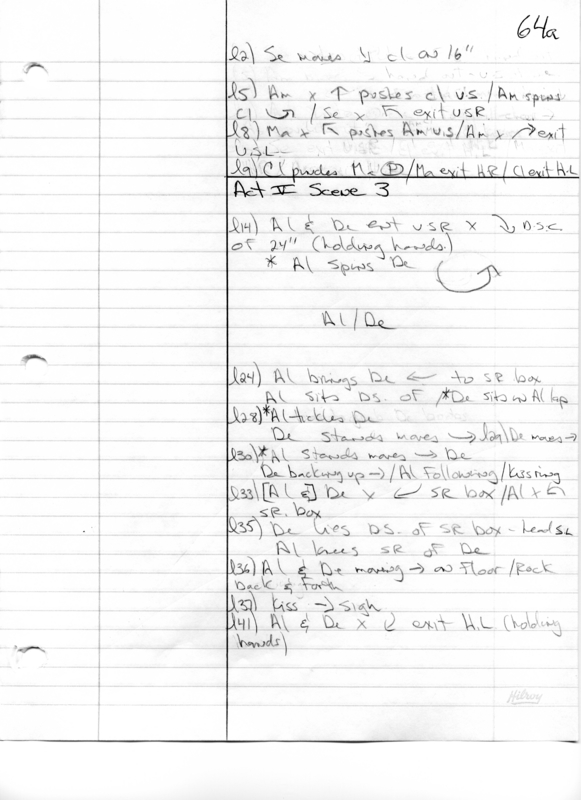 64a
l2) Se moves ↘ cl on 16"
l5) Am x ↑ pushes cl us / Am spins
Cl / Se x ↖ exit USR
l8) Ma x ↖ pushes Am us / Am x ↗ exit
USL
l9) Cl Ma / Ma exit HR / Cl exit H.L
Act V Scene 3
l14) Al & De ent USR x ↘ D.S.C.
of 24" (holding hands)
* Al spins De
Al / De
l24) Al brings De ← to SR box
Al sits DS. of / *De sits on Al lap
l28) *Al tickles De
De stands moves → l29) De moves →
l30) *Al stands moves → De
De backing up → / Al Following / Kissing
l33) [Al &] De x ↙ SR box / Al x ↖
SR. box
l35) De lies DS. of SR box - head SL
Al knees SR of De
l36) Al & De moving → on Floor / Rock
back & Forth
l37) Kiss → sigh
l41) Al & De x ↙ exit H.L (holding
hands)